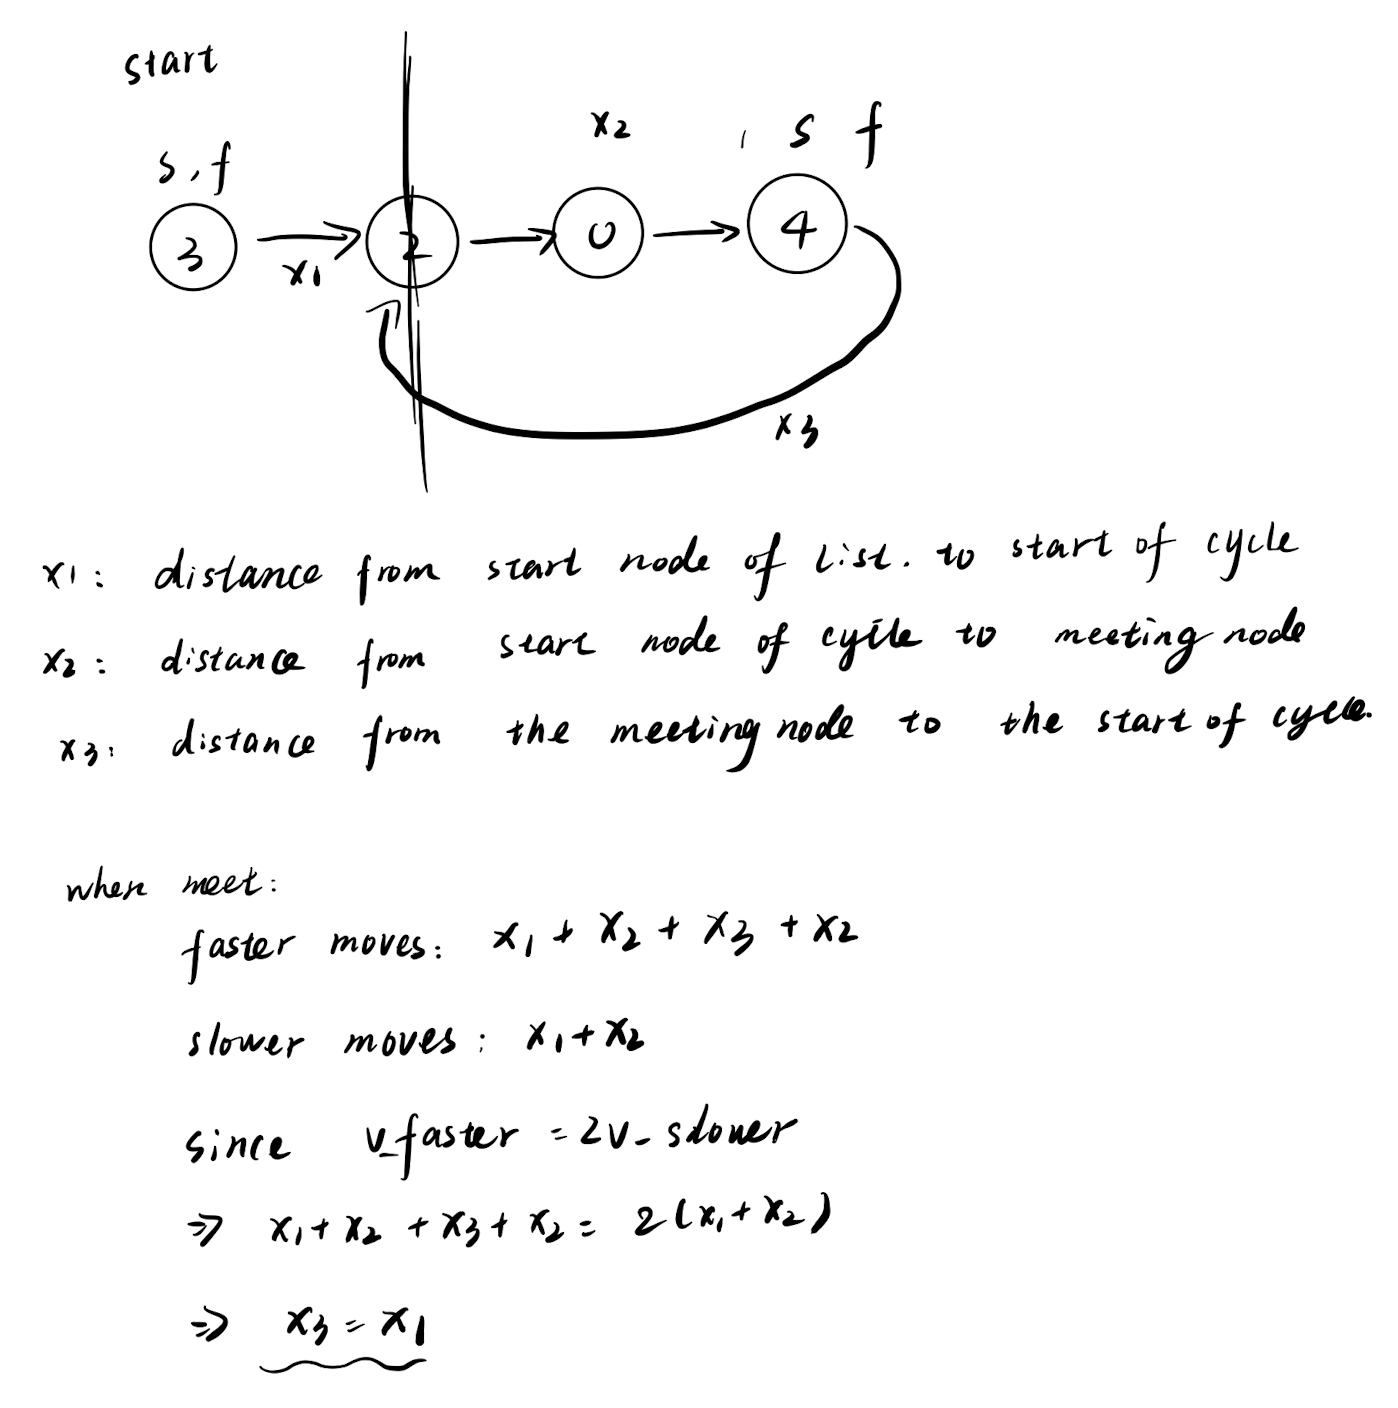 start
x2
s f
s,f
3
2
0
4
x1
x3
x1: distance from start node of list. to start of cycle
x2: distance from start node of cycle to meeting node
x3: distance from the meeting node to the start of cycle.
when meet:
faster moves: x1 + x2 + x3 + x2
slower moves: x1+x2
since v_faster = 2v_slower
⇒ x1+x2+x3+x2 = 2(x1+x2)
⇒ x3 = x1